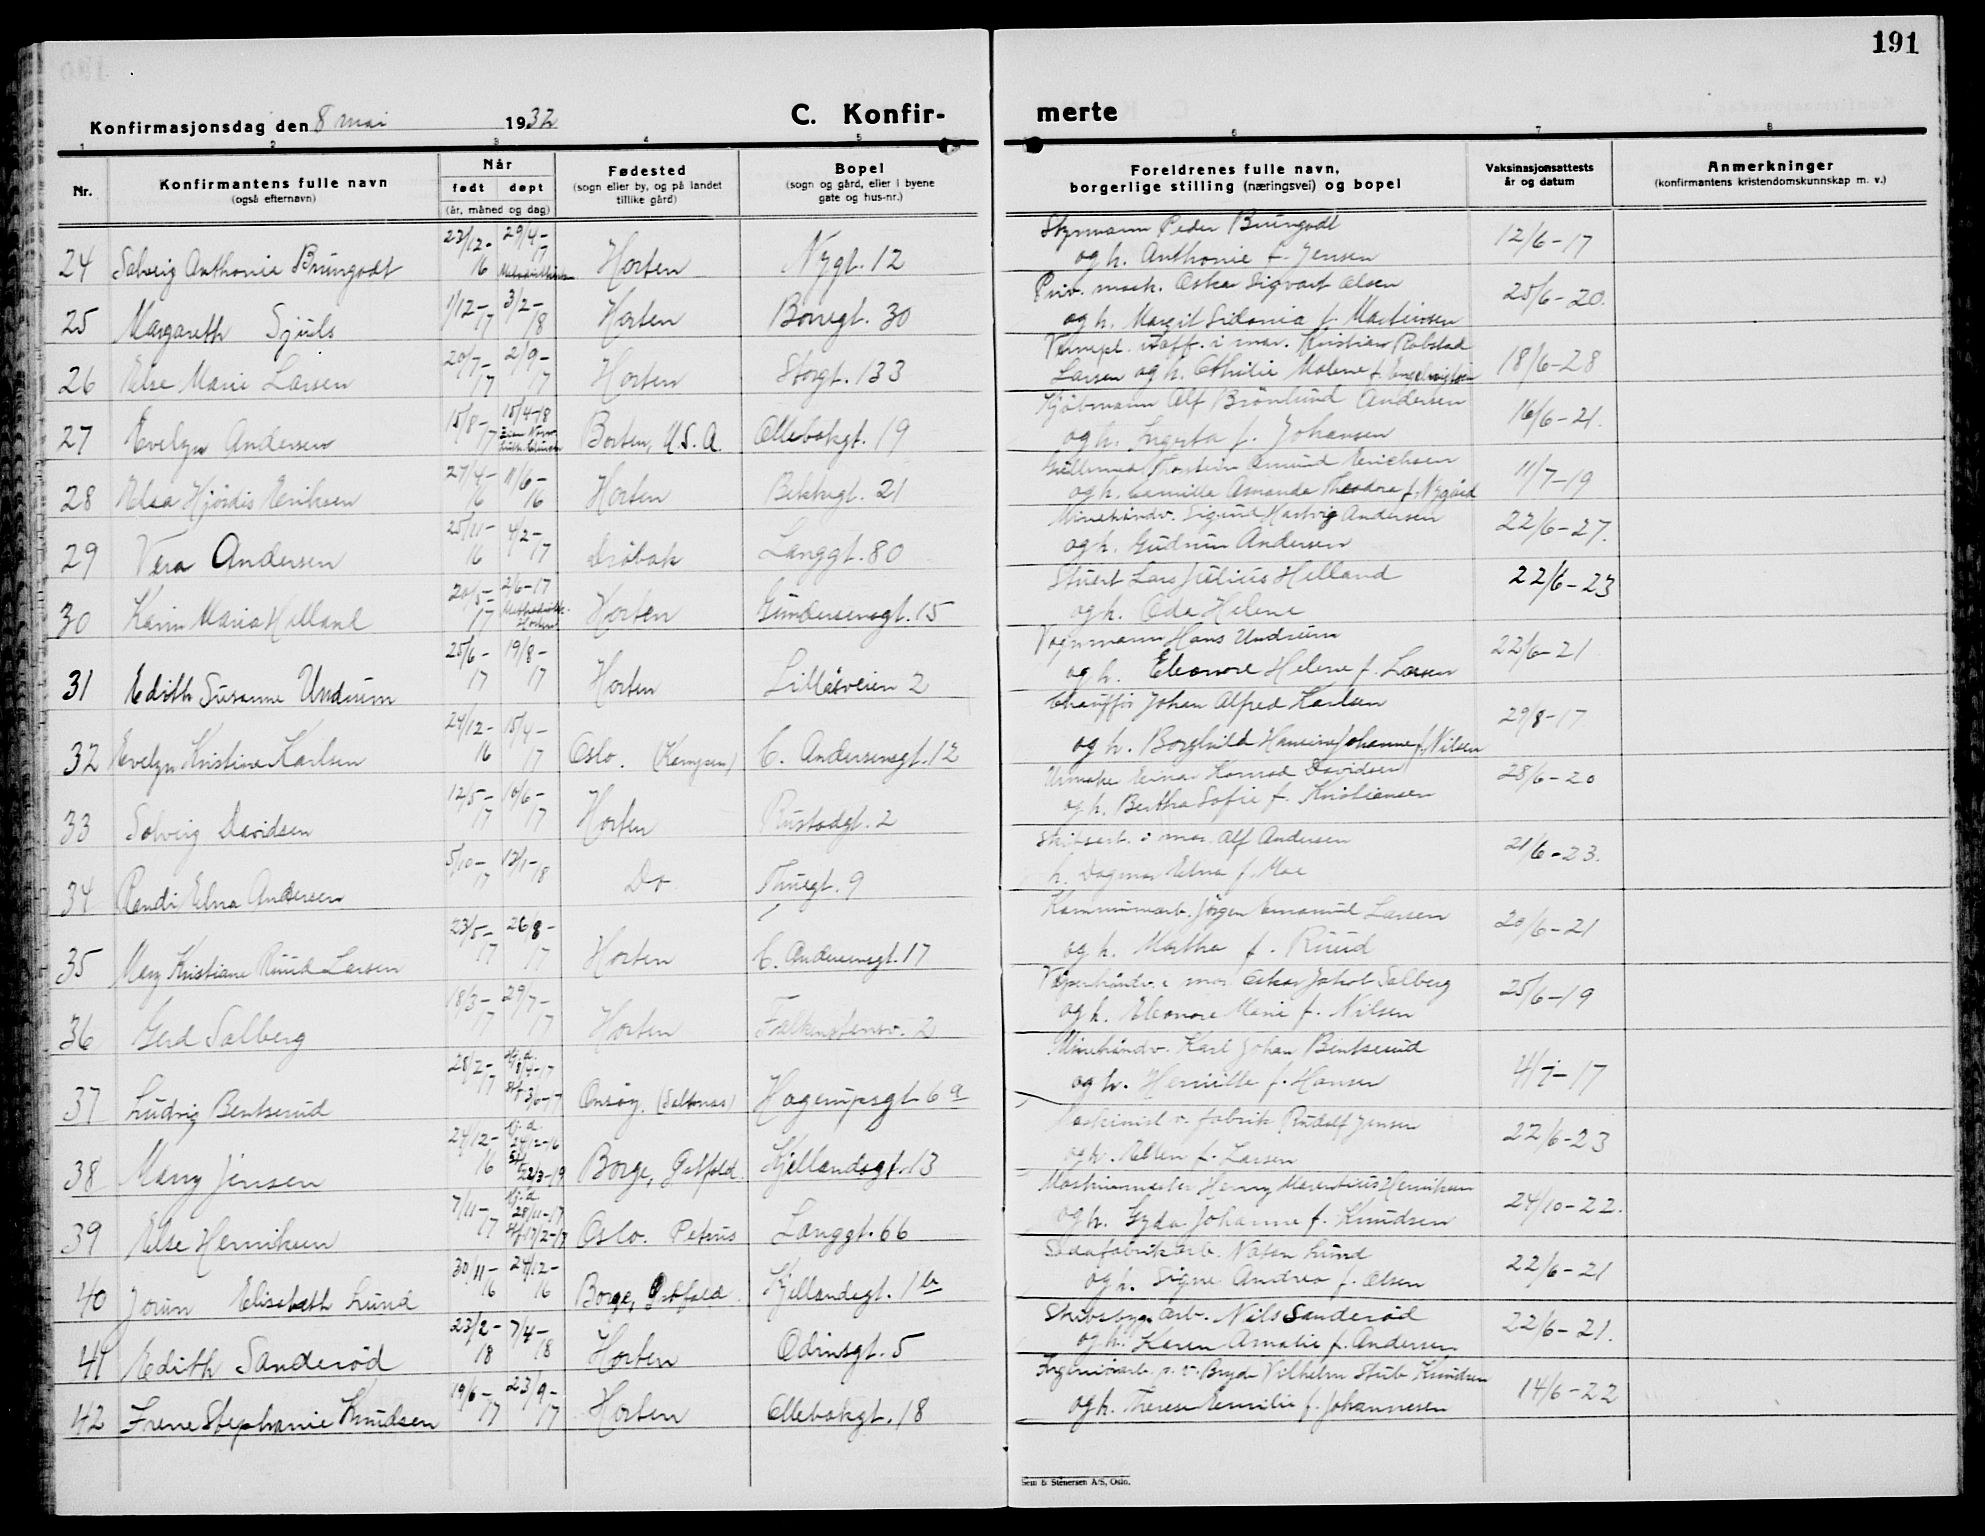 191
Konfirmasjonsdag den 8 mai 1932
C. Konfir-
merte
1 2 3 4 5 6 7 8
Nr.
Konfirmantens fulle navn
(også efternavn)
Når
født døpt
(år, måned og dag)
Fødested
(sogn eller by, og på landet
tillike gård)
Bopel
(sogn og gård, eller i byene
gate og hus-nr.)
Foreldrenes fulle navn,
borgerlige stilling (næringsvei) og bopel
Vaksinasjonsattests
år og datum
Anmerkninger
(konfirmantens kristendomskunnskap m. v.)
24 Solveig Anthonie Brungodt 23/12-16 29/4-17 Horten Nygt. 12
Styrmann Peder Brungodt
og h. Anthonie f. Jensen 12/6-17
25 Margareth Sjuls 1/12-17 3/2-18 Horten Borregt. 30
Priv. mask. Oskar Sigvart Olsen
og h. Margit Sidonia f. Martinsen 25/6-20.
26 Else Marie Larsen 20/7-17 2/9-17 Horten Storgt. 133
Vernepl. u.off. i mar. Kristian Robstad
Larsen og h. Othilie Malene f. 18/6-28
27 Evelyn Andersen 15/8-17 15/4-18 Borten, U.S.A. Ollebakgt. 19
Kjöbmann Alf Brönlund Andersen
og h. Ingerta f. Johansen 16/6-21.
28 Elsa Hjördis Eriksen 27/4-16 11/6-16 Horten Bekkegt. 21
Thorstein Amund Erichsen
og h. Camilla Amanda Theodora f. Nygård 11/7-19
29 Vera Andersen 25/11-16 4/2-17 Dröbak Langgt. 80
Minehåndv. Sigurd Hartvig Andersen
og h. Gudrun Andersen 22/6-27.
30 Karin Maria Helland 20/5-17 2/6-17 Methodistk. Horten Horten Gundersensgt. 15
Stuert Lars Julius Helland
og h. Oda Helene 22/6-23
31 Edith Susanne Undrum 25/6-17 19/8-17 Horten Lillåsveien 2
Vognmann Hans Undrum
og h. Eleonore Helene f. Larsen 22/6-21
32 Evelyn Kristine Karlsen 24/12-16 15/4-17 Oslo. (Kampen) C. Andersensgt. 12
Chaufför Johan Alfred Karlsen
og h. Borghild Hansine Johanne f. Nilsen 29/8-17
33 Solveig Davidsen 12/5-17 10/6-17 Horten Rustadgt. 2
Urmaker Einar Konrad Davidsen
og h. Bertha Sofie f. Kristiansen 28/6-20
34 Randi Elna Andersen 5/10-17 13/1-18 Do Thuegt. 9
i mar. Alf Andersen
h. Dagmar Elna f. Moe 21/6-23.
35 Mary Kristiane Ruud Larsen 23/5-17 26/8-17 Horten C. Andersensgt. 17
Kommunearb. Jörgen Emanuel Larsen
og h. Martha f. Ruud 20/6-21
36 Gerd Solberg 18/3-17 29/7-17 Horten Falkenstensv. 2
Våpenhåndv. i mar. Oskar Jakob Solberg
og h. Eleonore Marie f. Nilsen 25/6-19
37 Ludvig Bentserud 28/2-17 Hj.d. 8/4-17 3/6-17 Onsöy. (Saltnes) Hagerupsgt 6 a
Minehåndv. Karl Johan Bentserud
og h. Henriette f. Hansen 4/7-17
38 Mary Jensen 24/12-16 Hj.d. 24/12-16 22/3-19 Borge, Östfold. Kjellandsgt. 13
Maskinist v. fabrik Rudolf Jensen
og h. Ellen f. Larsen 22/6-23
39 Else Henriksen 7/11-17 Hj.d. 28/11-17 17/2-18 Oslo. Petrus Langgt. 66
Maskinmester Henry Marentius Henriksen
og h. Gyda Johanne f. Knudsen 24/10-22.
40 Jorun Elisabeth Lund 30/11-16 24/12-16 Borge, Östfold Kjellandsgt. 1 b
Sodafabrikarb. Natan Lund
og h. Signe Andrea f. Olsen 22/6-21
41 Edith Sanderöd 23/2-18 7/4-18 Horten Odinsgt. 5
Skibsbyg. arb. Nils Sanderöd
og h. Karen Amalie f. Andersen 22/6-21.
42 Irene Stephanie Knudsen 19/6-17 23/9-17 Horten Ollebakgt. 18
Vilhelm Stub Knudsen
og h. Therese Emilie f. Johannesen 14/6-22
Sem & Stenersen A/S, Oslo.